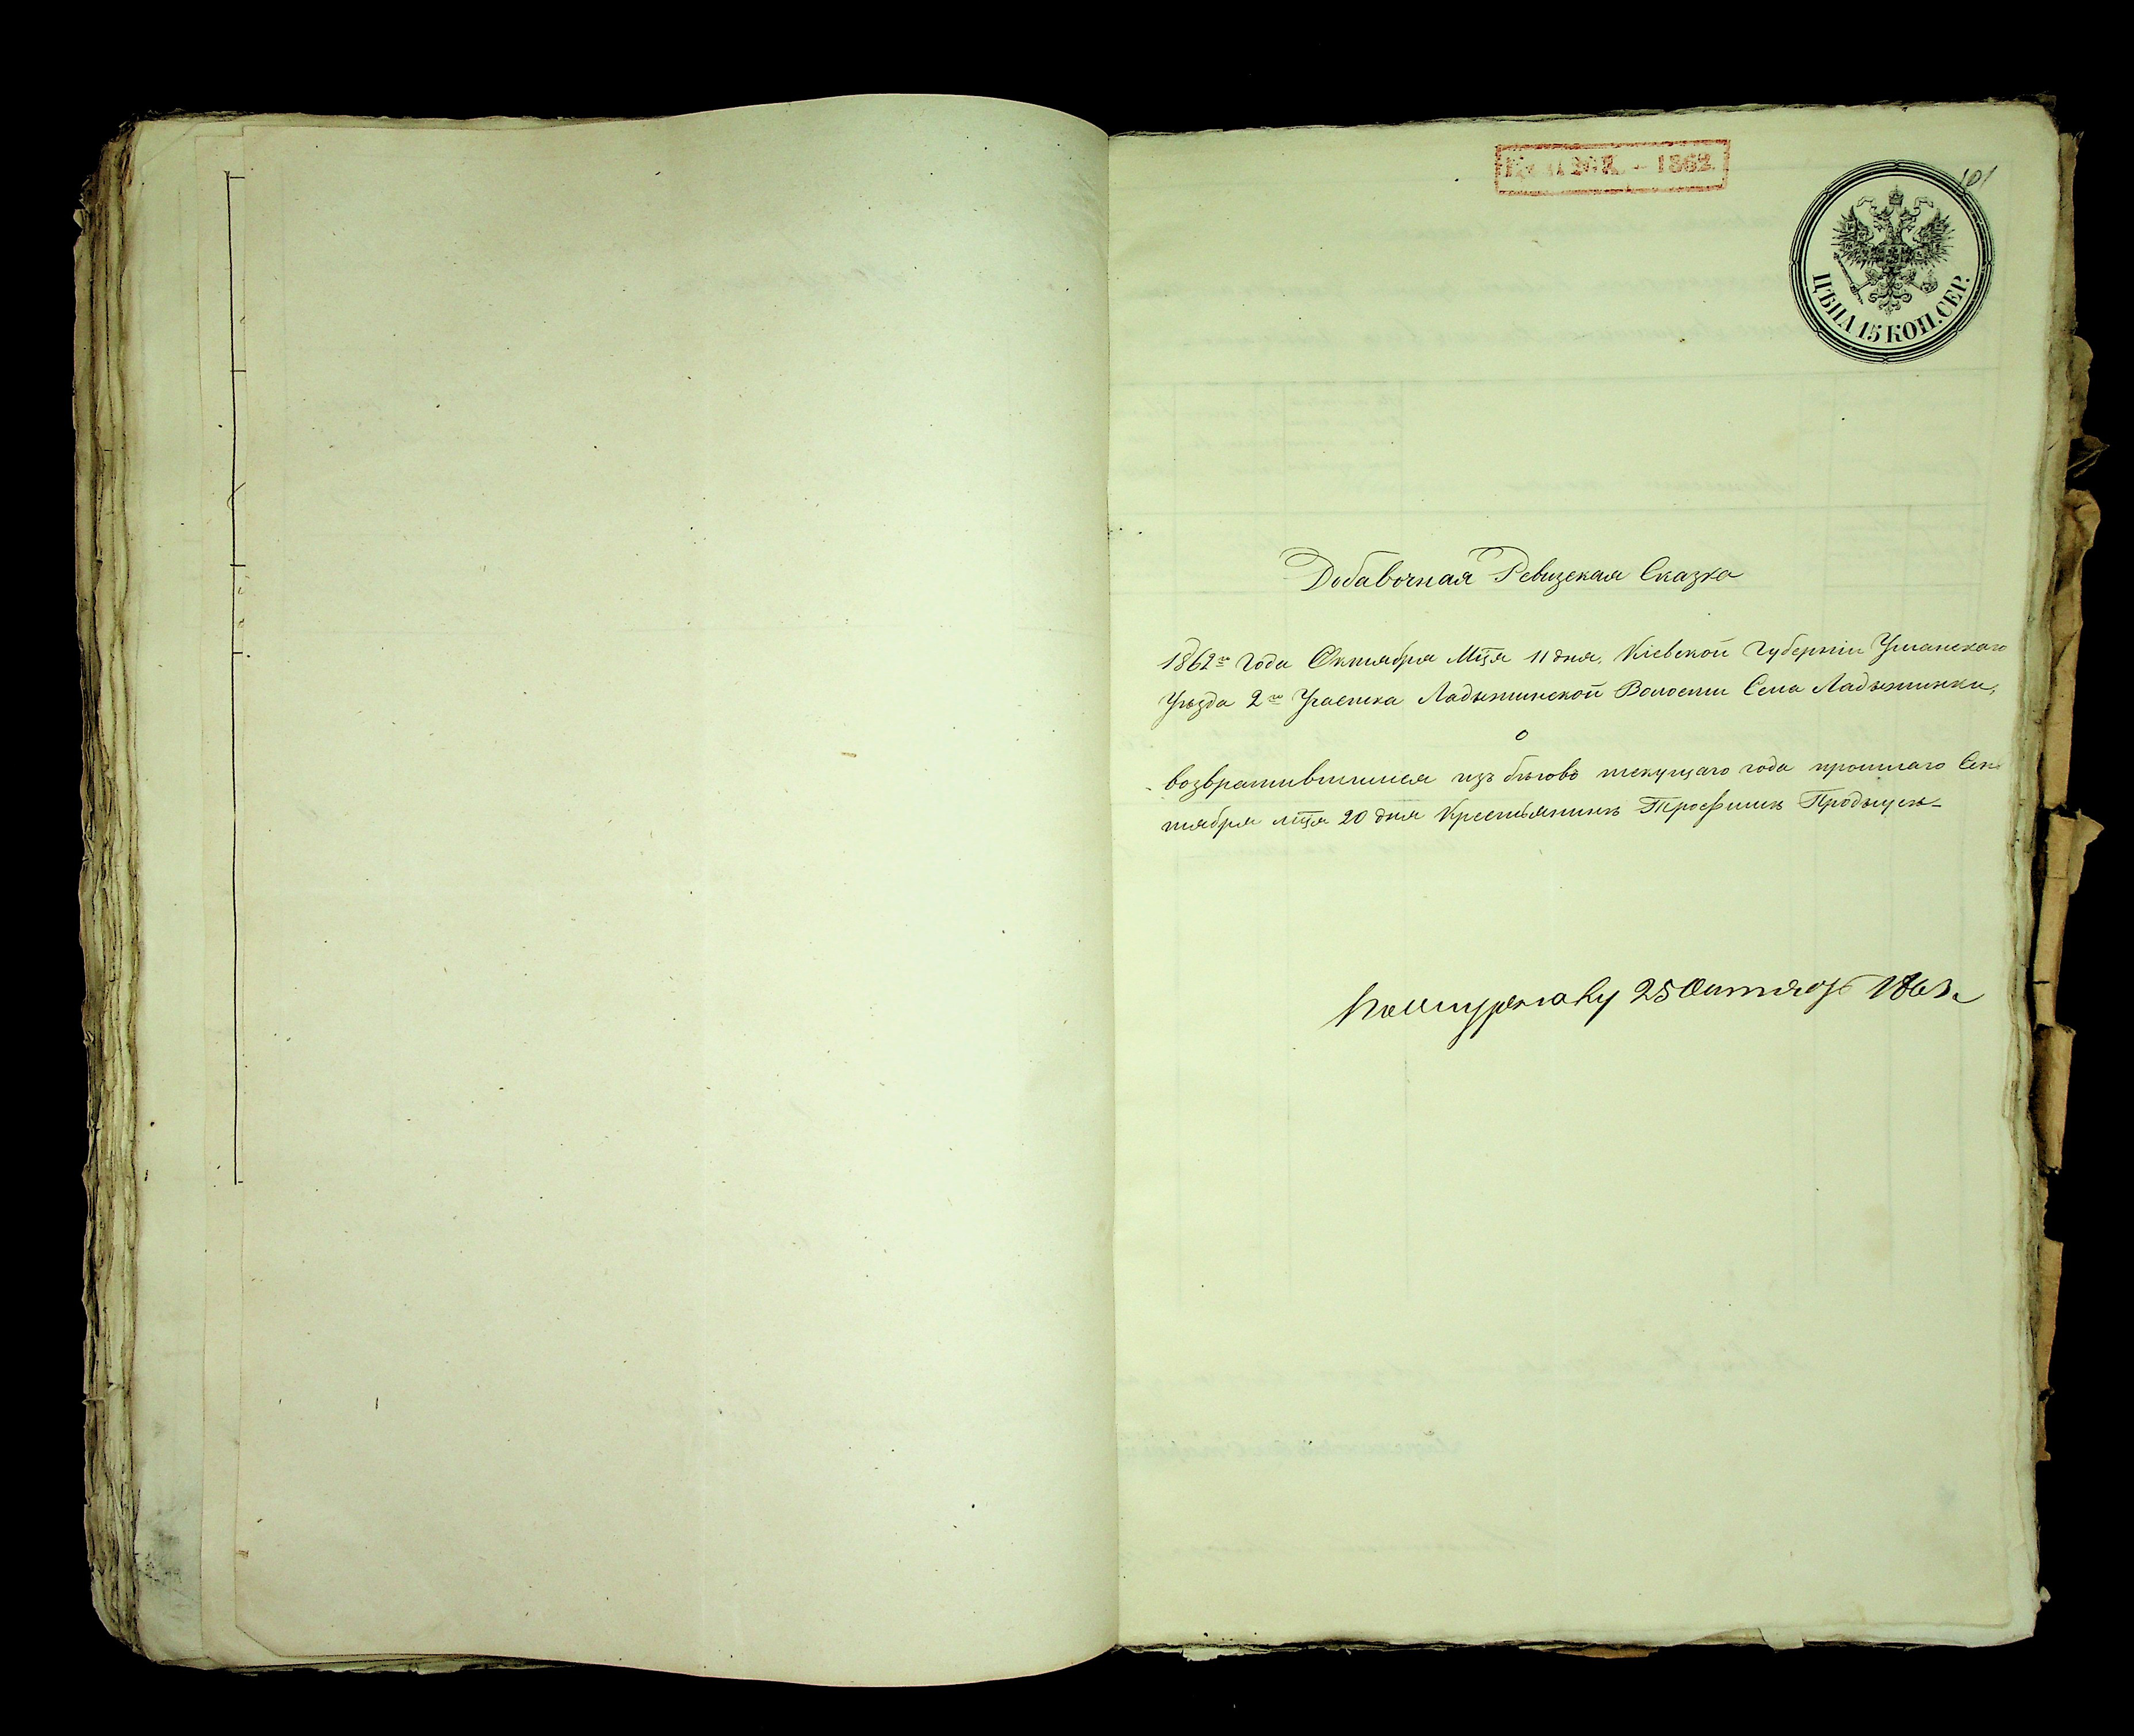 1862
101
ЦѢНА 15 КОП. СЕР.
Добавочная Ревизская Сказка
1862го Года Октября Мця 11 дня, Кіевской Губерніи Уманскаго
Уѣзда 2го Участка Ладыжинской Волости Села Ладыжинки,
о
возвратившимся изъ бѣговъ текущаго года прошлаго Сен
тября мця 20 дня Крестьянинъ
25 Октября